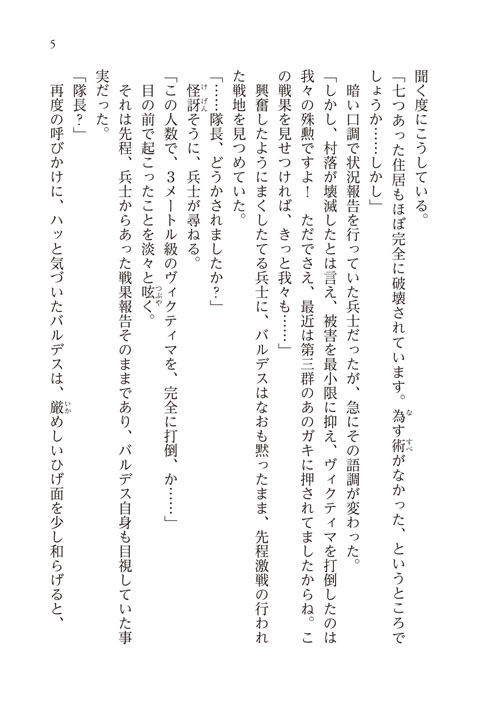 5
聞く度にこうしている。
「七つあった住居もほぼ完全に破壊されています。為す術がなかった、というところで
しょうか……しかし」
暗い口調で状況報告を行っていた兵士だったが、急にその語調が変わった。
「しかし、村落が壊滅したとは言え、被害を最小限に抑え、ヴィクティマを打倒したのは
我々の殊勲ですよ！　ただでさえ、最近は第三群のあのガキに押されてましたからね。こ
の戦果を見せつければ、きっと我々も……」
興奮したようにまくしたてる兵士に、バルデスはなおも黙ったまま、先程激戦の行われ
た戦地を見つめていた。
「……隊長、どうかされましたか？」
怪訝そうに、兵士が尋ねる。
「この人数で、３メートル級のヴィクティマを、完全に打倒、か……」
目の前で起こったことを淡々と呟く。
それは先程、兵士からあった戦果報告そのままであり、バルデス自身も目視していた事
実だった。
「隊長？」
再度の呼びかけに、ハッと気づいたバルデスは、厳めしいひげ面を少し和らげると、